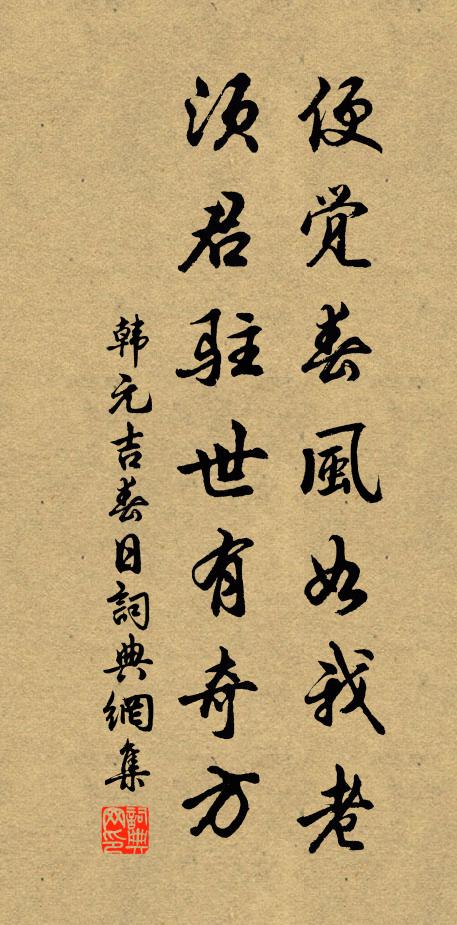 便覺春風如我老
須君駐世有奇方
韩元吉春日詞典網集
詞典网印